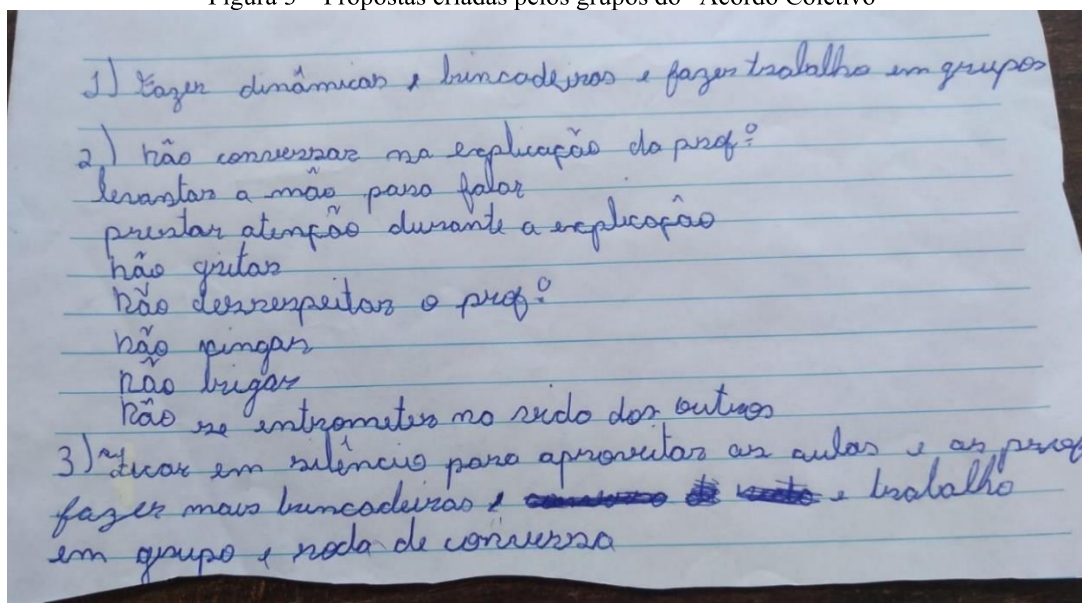 Figura 3 – Propostas criadas pelos grupos do "Acordo Coletivo"
1) Fazer dinâmicas e brincadeiras e fazer trabalho em grupos
2) não conversar na explicação da profº
levantar a mão para falar
prestar atenção durante a explicação
não gritar
não desrespeitar o profº
não xingar
não brigar
não se entrometer no vida dos outros
3) ficar em silêncio para aproveitar as aulas e as prof
fazer mais brincadeiras e e trabalho
em grupo e roda de conversa